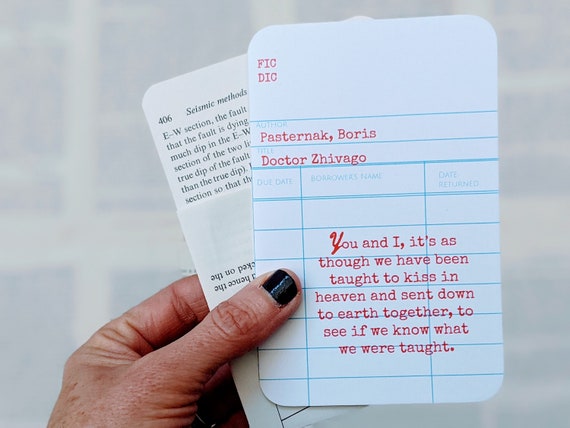 406 Seismic methods
E–W section, the fault
that the fault is dying
much dip in the E–W
section of the two li
true dip of the fault
than the true dip).
section so that th
cked on the
d hence the
FIC
DIC
AUTHOR
Pasternak, Boris
TITLE
Doctor Zhivago
DUE DATE BORROWER'S NAME DATE RETURNED
You and I, it's as
though we have been
taught to kiss in
heaven and sent down
to earth together, to
see if we know what
we were taught.